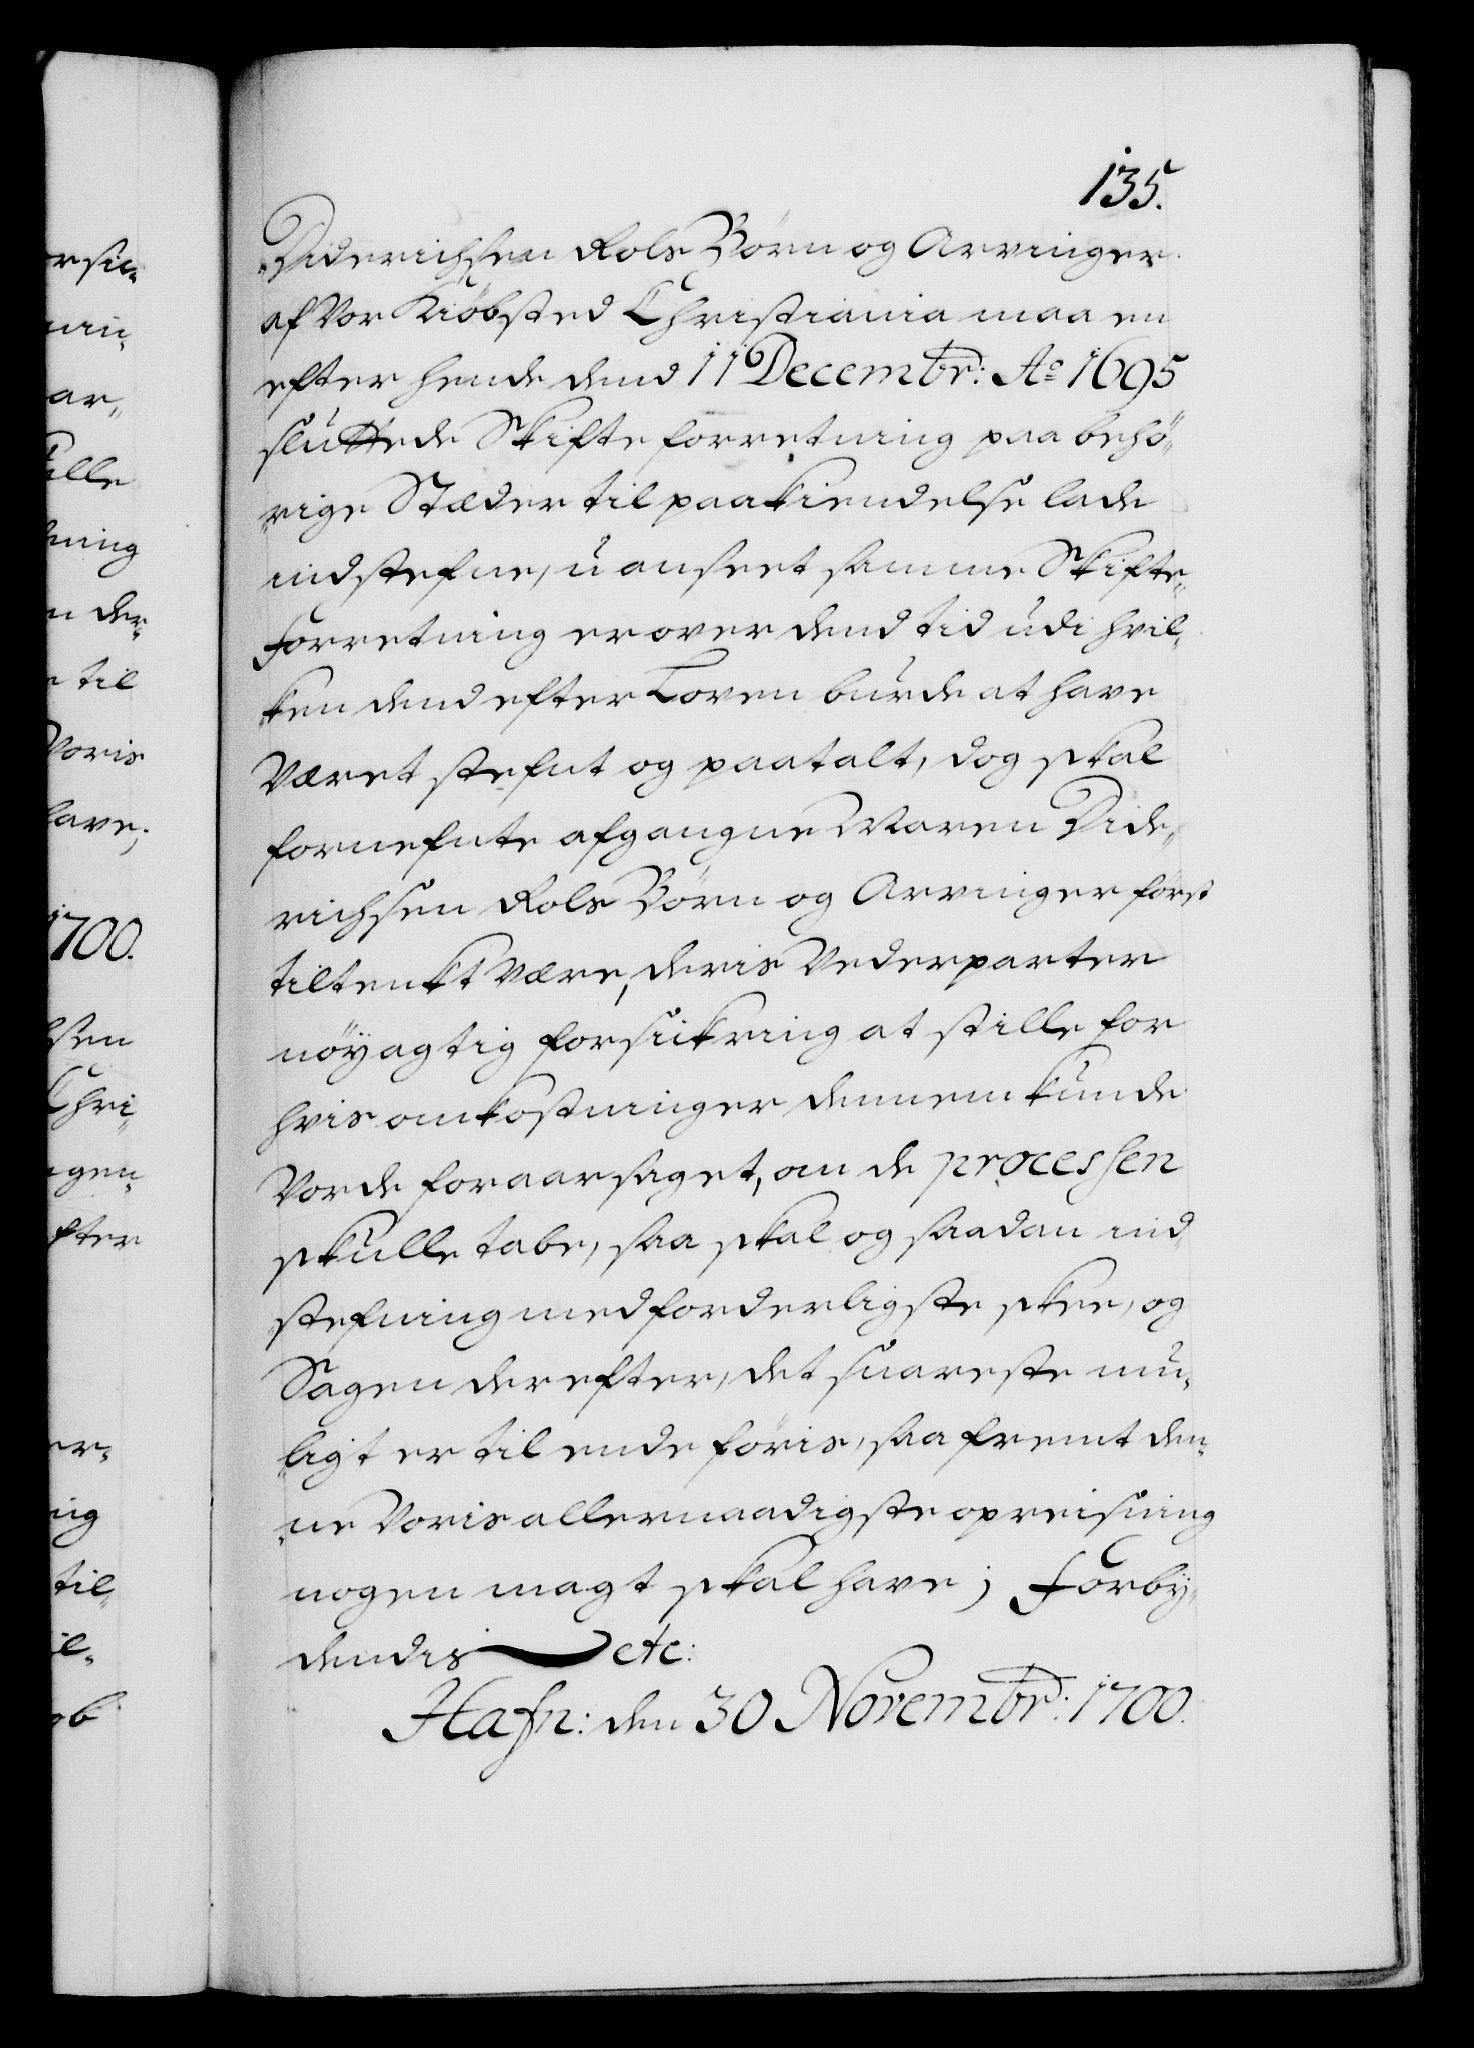 135.
Diderichsen Rols Börn og Arvinger
af Vor Kiöbsted Christiania maa en
efter hende dend 11 Decembr: Ao 1695
sluttede Skifte forretning paa behö„
„rige Stæder til paakiendelse lade
indstefne, uanseet samme Skifte„
Forretning er over dend tid udi hvil„
„ken dend efter Loven burde at have
Været stefnt og paatalt, dog skal
fornefnte afgangne Maren Dide„
richsen Rols Börn og Arvinger först
tiltenkt Være, deris Vederparter
nöyagtig forsikring at stille for
hvis omkostninger dennem kunde
Vorde foraarsaget, om de processen
skulle tabe, saa skal og saadan ind
stefning med forderligste skee, og
Sagen derefter, det snareste mu„
„ligt er til ende föris, saa fremt den„
„ne Voris allernaadigste opreisning
nogen magt skal have; Forby„
dendis etc:
Hafn: den 30 Novembr: 1700.